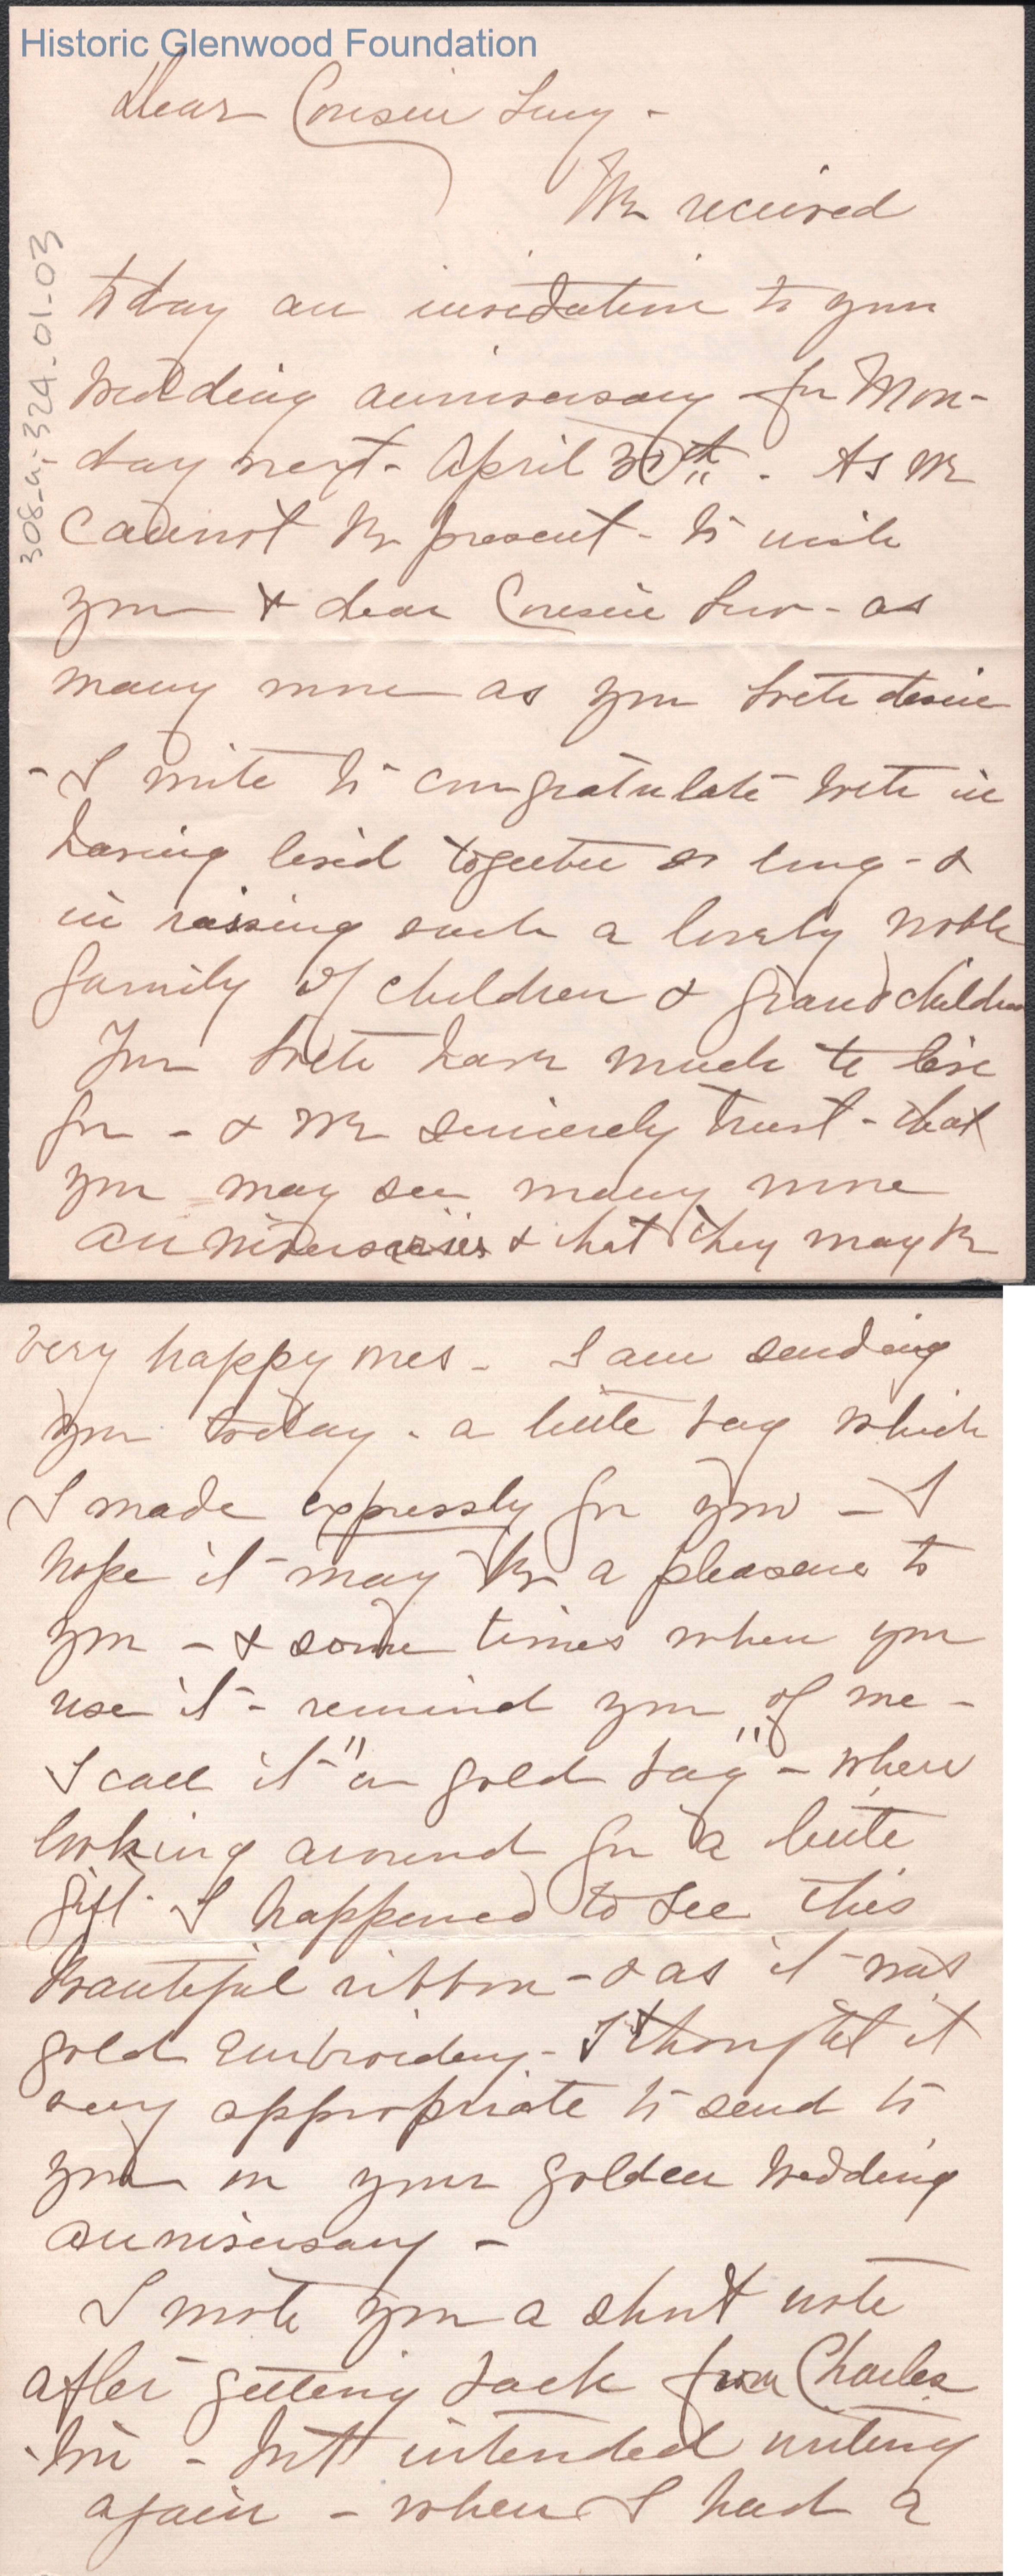 Historic Glenwood Foundation
Dear Cousin Lucy -
We received
today an invitation to your
wedding anniversary for Mon-
day next - April 30th. As we
cannot be present - to wish
you & dear Cousin - as
many more as you both desire
- I write to congratulate both in
having lived together so long - &
in raising such a lovely noble
family of children & grandchildren
You both have much to live
for - & we sincerely trust - that
you may see many more
anniversaries & that they may be
308-a-324-01-03
very happy ones - I am sending
you today - a little bag which
I made expressly for you - I
hope it may be a pleasure to
you - & some times when you
use it - remind you of me -
I call it "a gold bag" - when
looking around for a little
gift I happened to see this
beautiful ribbon - & as it was
gold embroidery - I thought it
very appropriate to send to
you on your golden wedding
anniversary -
I wrote you a short note
after getting back from Charles
- but intended writing
again - when I had a